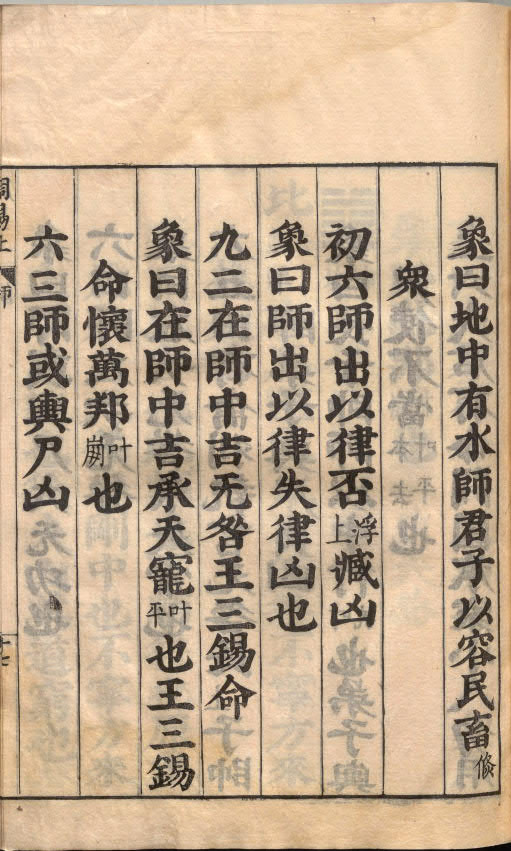 象曰地中有水師君子以容民畜㑞
衆
初六師出以律否浮上臧凶
象曰師出以律失律凶也
九二在師中吉无咎王三錫命
象曰在師中吉承天寵叶平也王三錫
命懷萬邦叶也
六三師或輿尸凶
周易上
師
十七